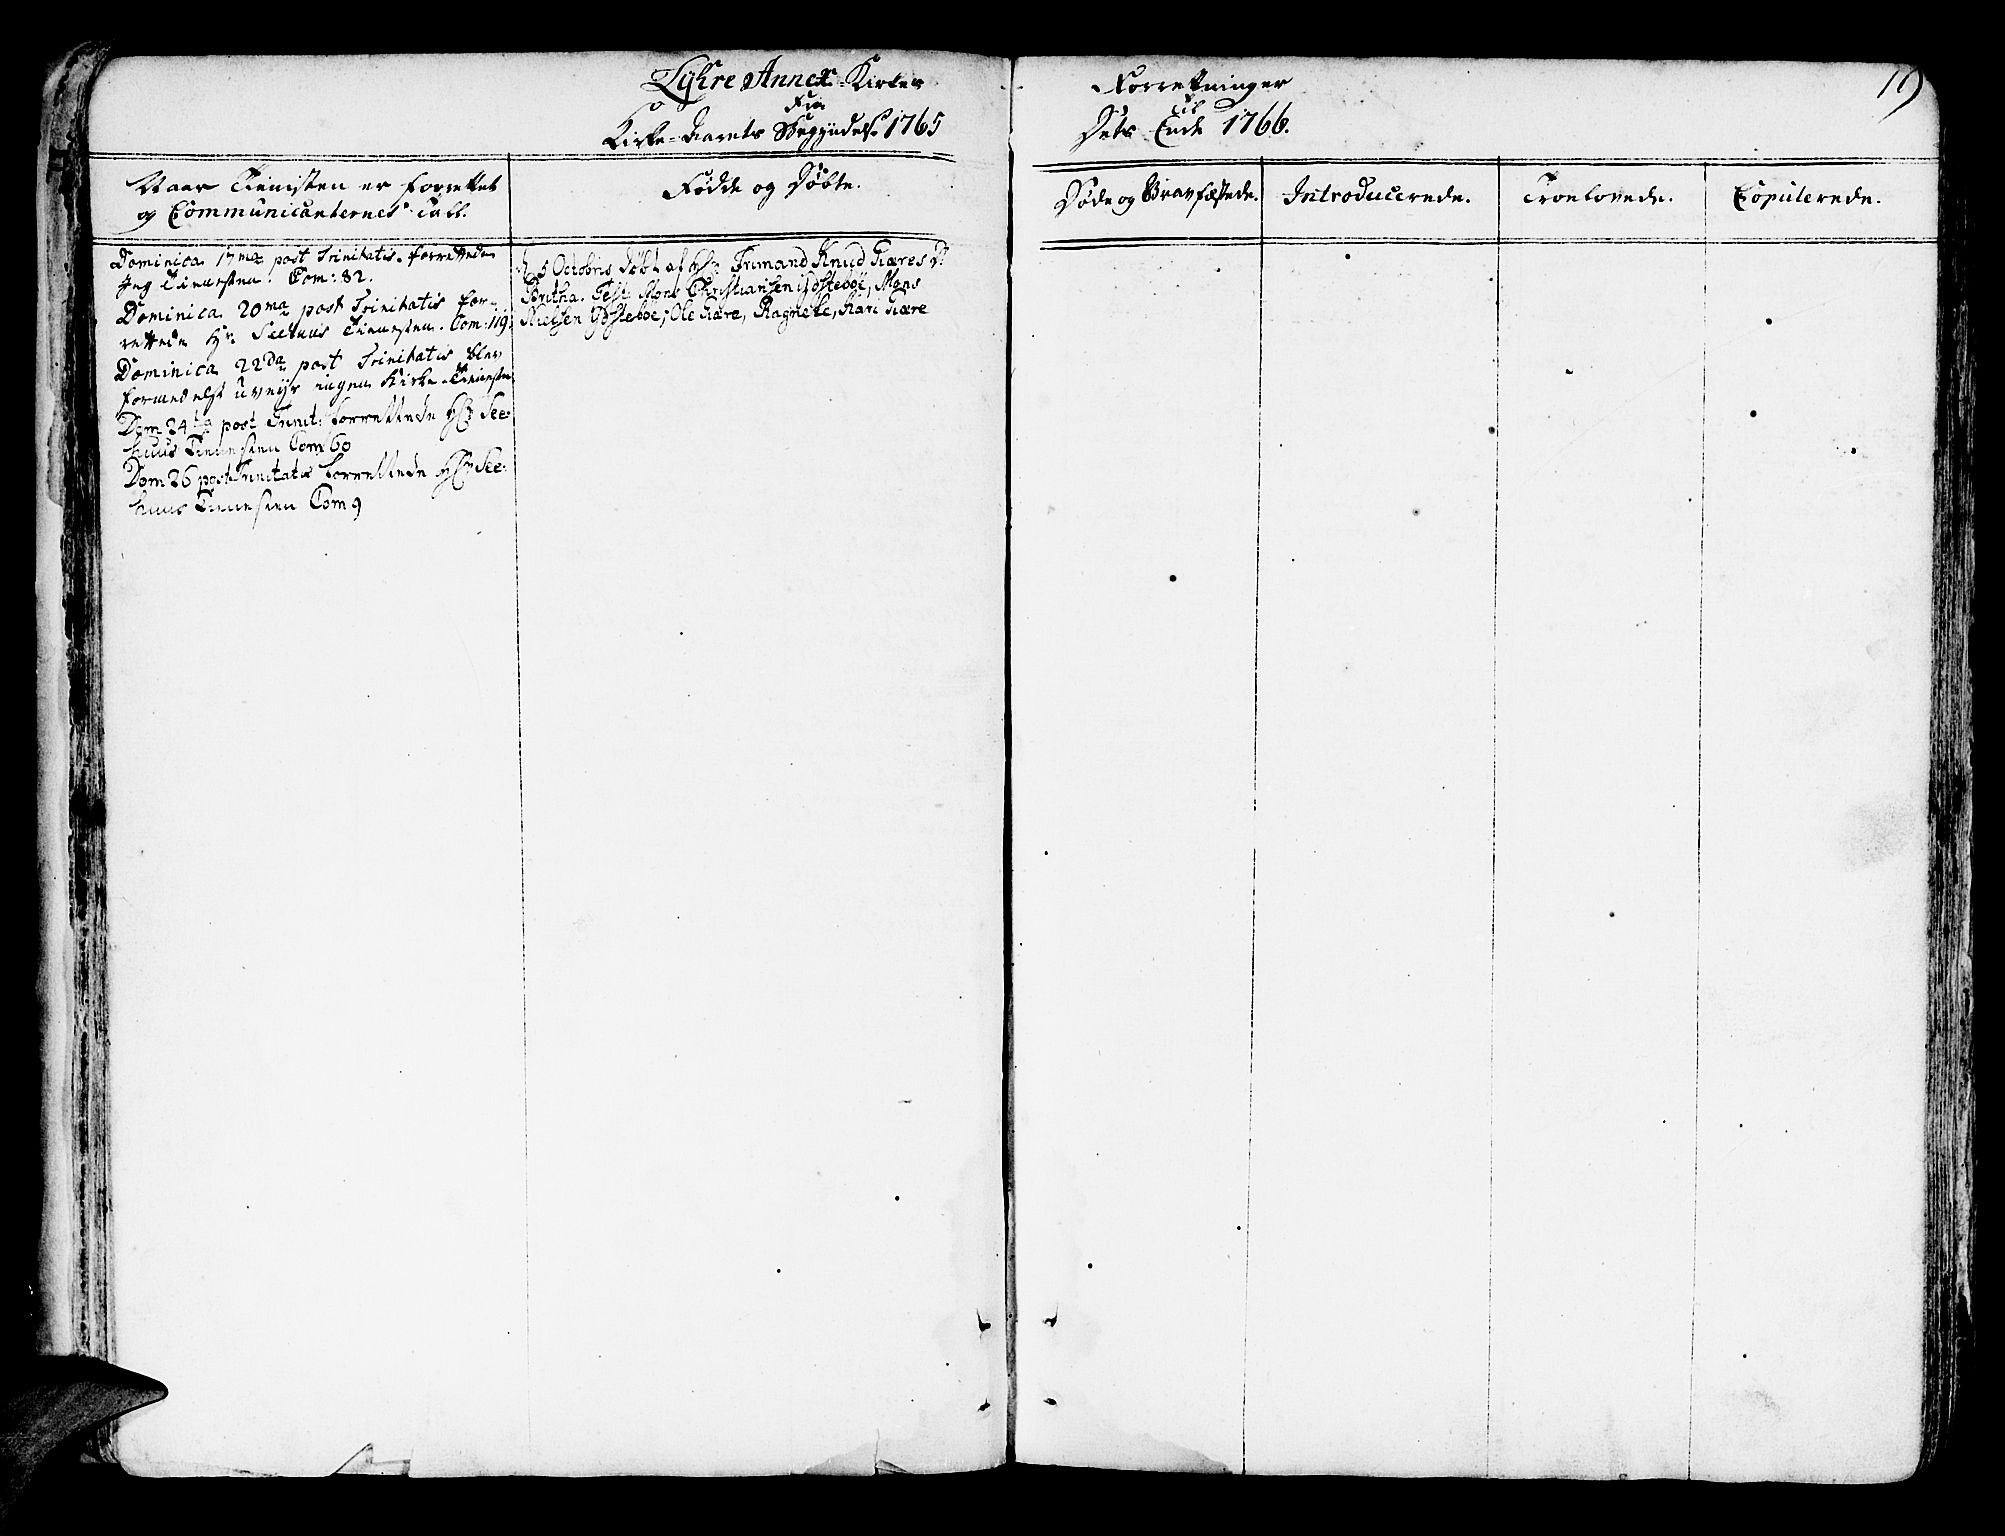 Lyhre Annex-Kirkes
Fra
Kirke-Aarets Begyndelse 1765
Forretninger
til
Dets Ende 1766.
17
Naar Tienisten er forrettet
og Communicanternes Tall.
Fødde og Døbte.
Døde og Gravfæstede.
Introducerede.
Troelovede.
Copulerede.
Dominica 17ma post Trinitatis. forrettede
Jeg Tienesten. Com: 82.
Dominica 20ma post Trinitatis for-
rettede Hr. Seehuus Tienesten. Com: 119.
Dominica 22da post Trinitatis blev
formedelst uveyr ingen Kirke-Tieneste
Dom 24ta post Trinit: forrettede Hr See-
huus Tienesten Com 60
Dom 26 post Trinitatis forrettede Hr See-
huus Tienesten Com 9
5 Octobris døbt af Hr Frimand Knud Kæres D:
Britha. Test: Mons Christiansen Gösteböe, Mons
Nielsen Gösteböe, Ole Kære, Ragnele, Kari Kære